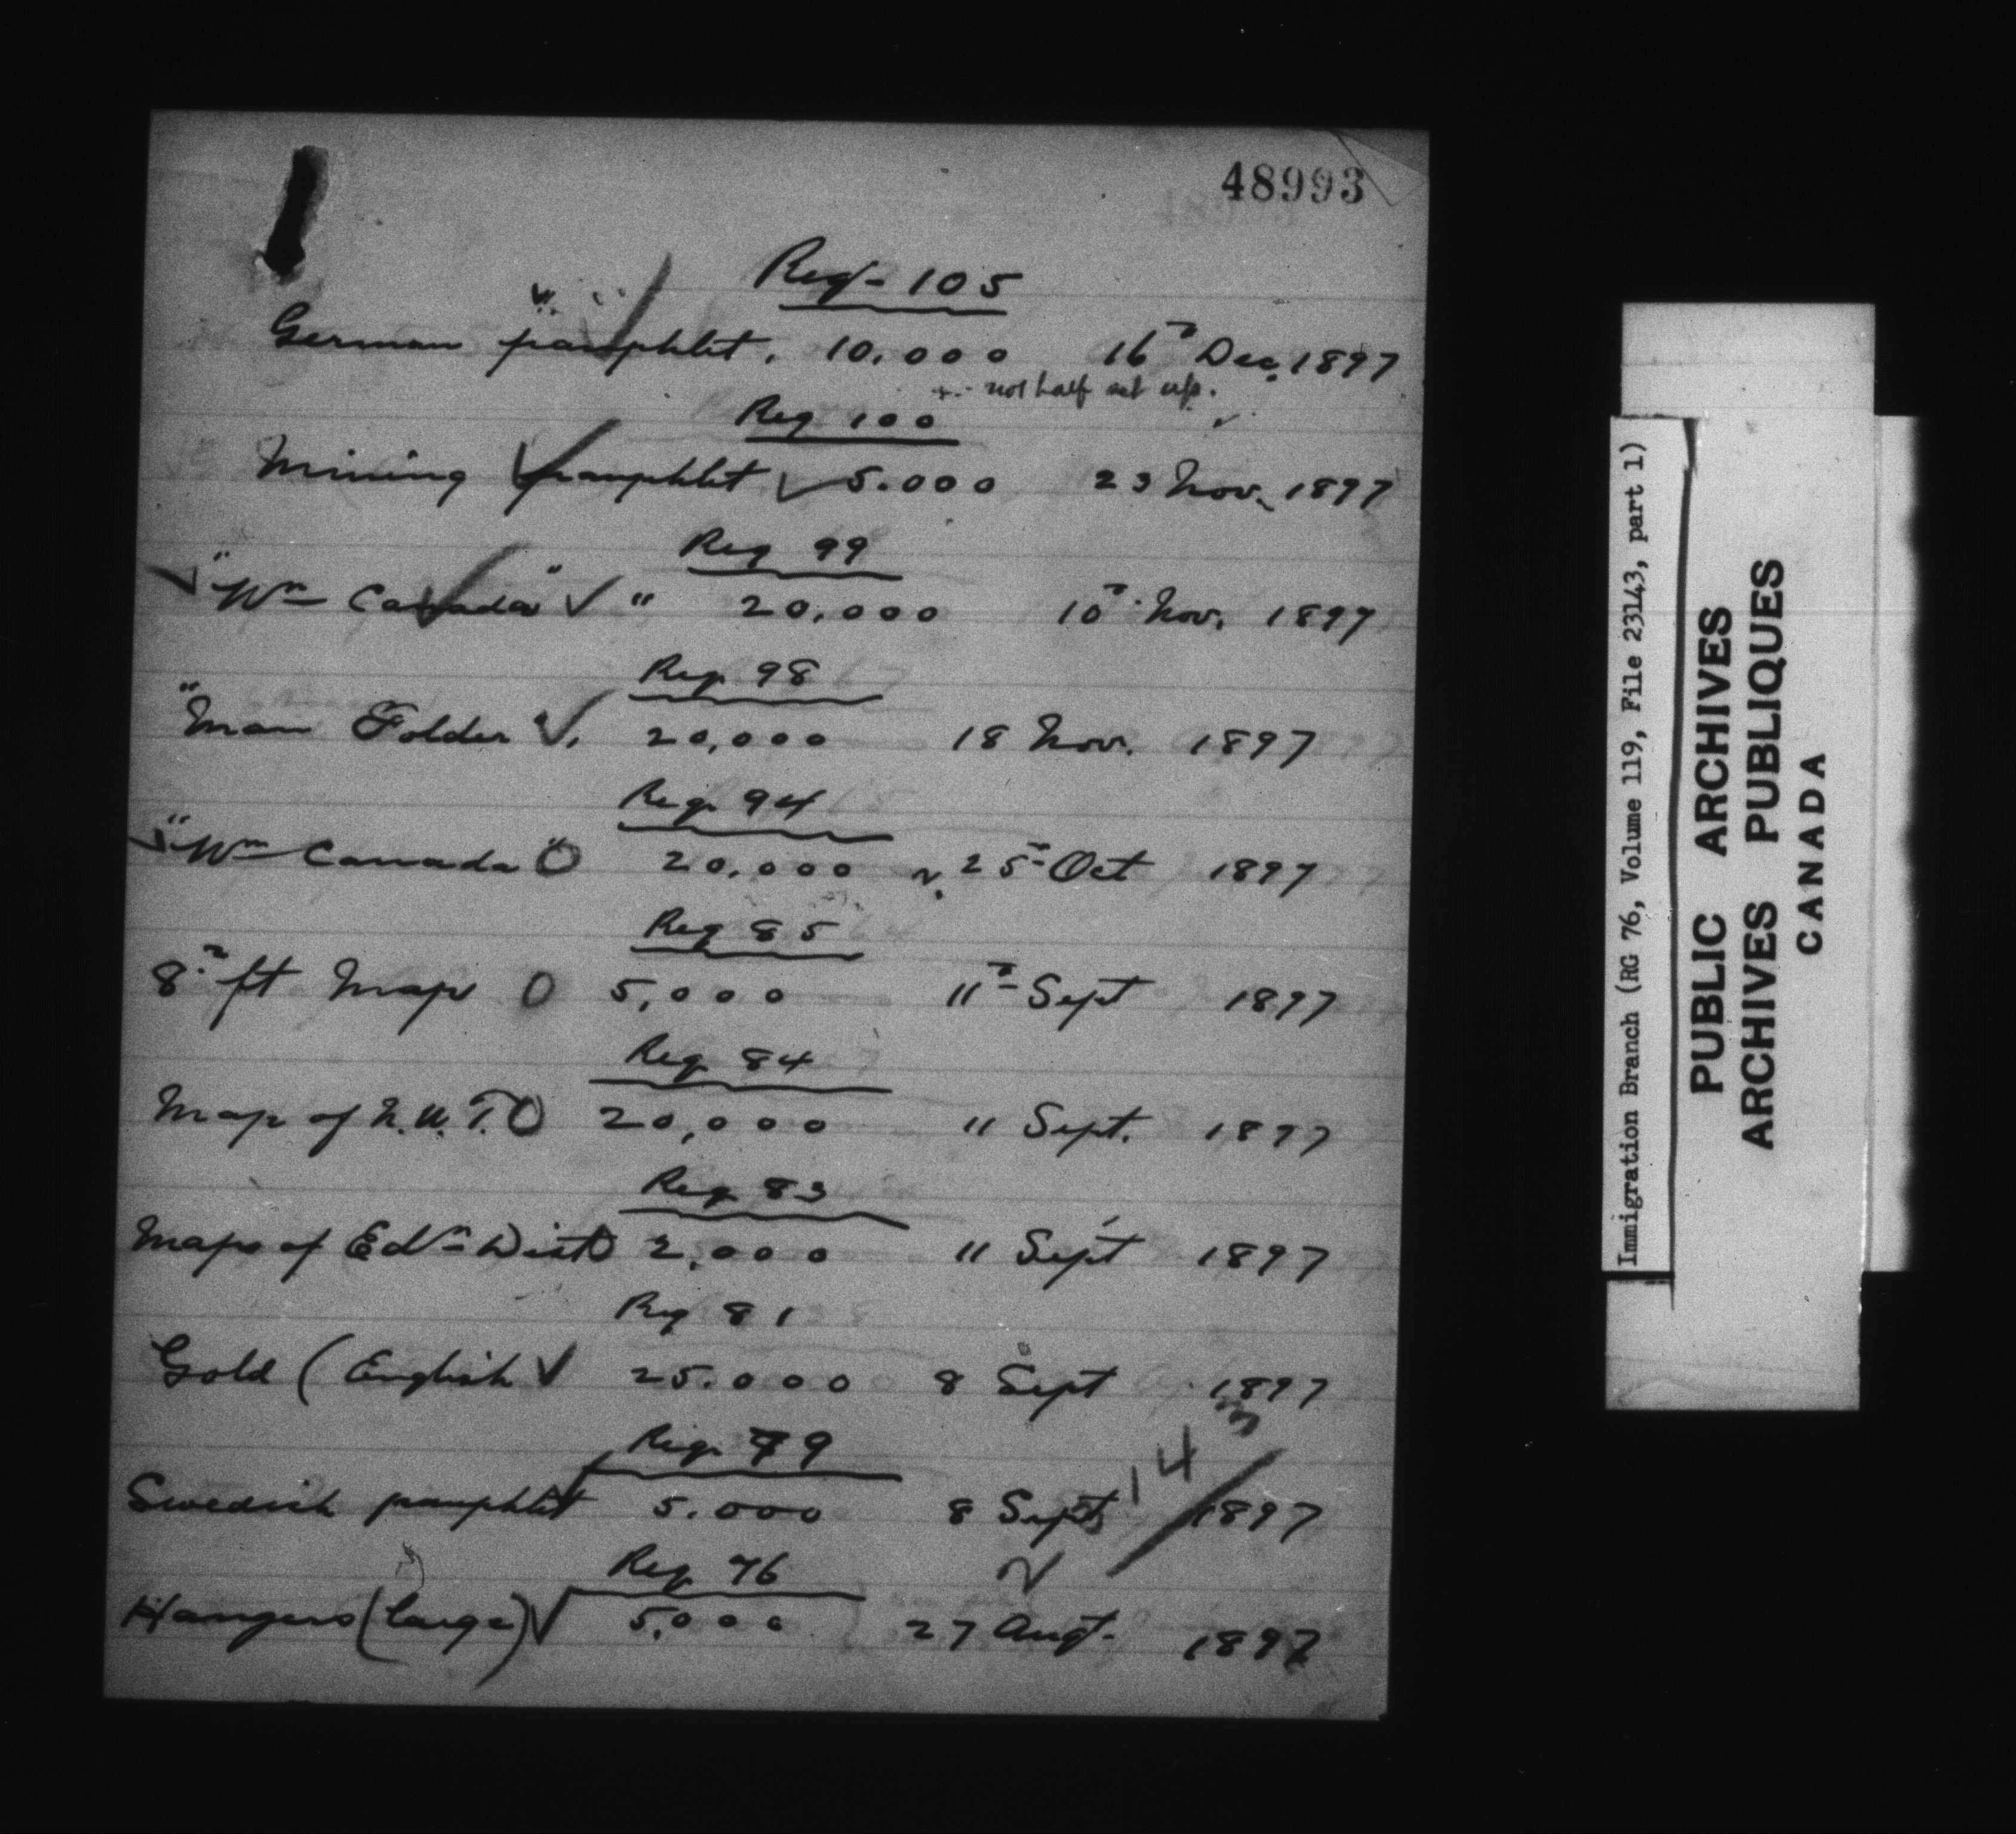 48993
Reqn 105
German pamphlet. 10,000 16th Dec. 1897
not half set up.
Req 100
Mining pamphlet 5.000 23 Nov. 1897
Req 99
"Wn Canada" " 20,000 10th Nov. 1897
Req. 98
"Man Folder". 20,000 18 Nov. 1897
Req. 94
"Wn Canada" 20,000 25th Oct 1897
Req 85
8 ft Map 5,000 11th Sept 1897
Req. 84
Map of N.W.T. 20,000 11 Sept. 1897
Req. 83
Maps of Edn Dist 2,000 11 Sept 1897
Req 81
Gold (English 25.000 8 Sept 1897
Req. 79
Swedish pamphlet 5.000 8 Sept 1897
Req. 76
Hangers (large) 5,000 27 Augt. 1897
Immigration Branch (RG 76, Volume 119, File 23143, part 1)
PUBLIC ARCHIVES
ARCHIVES PUBLIQUES
CANADA